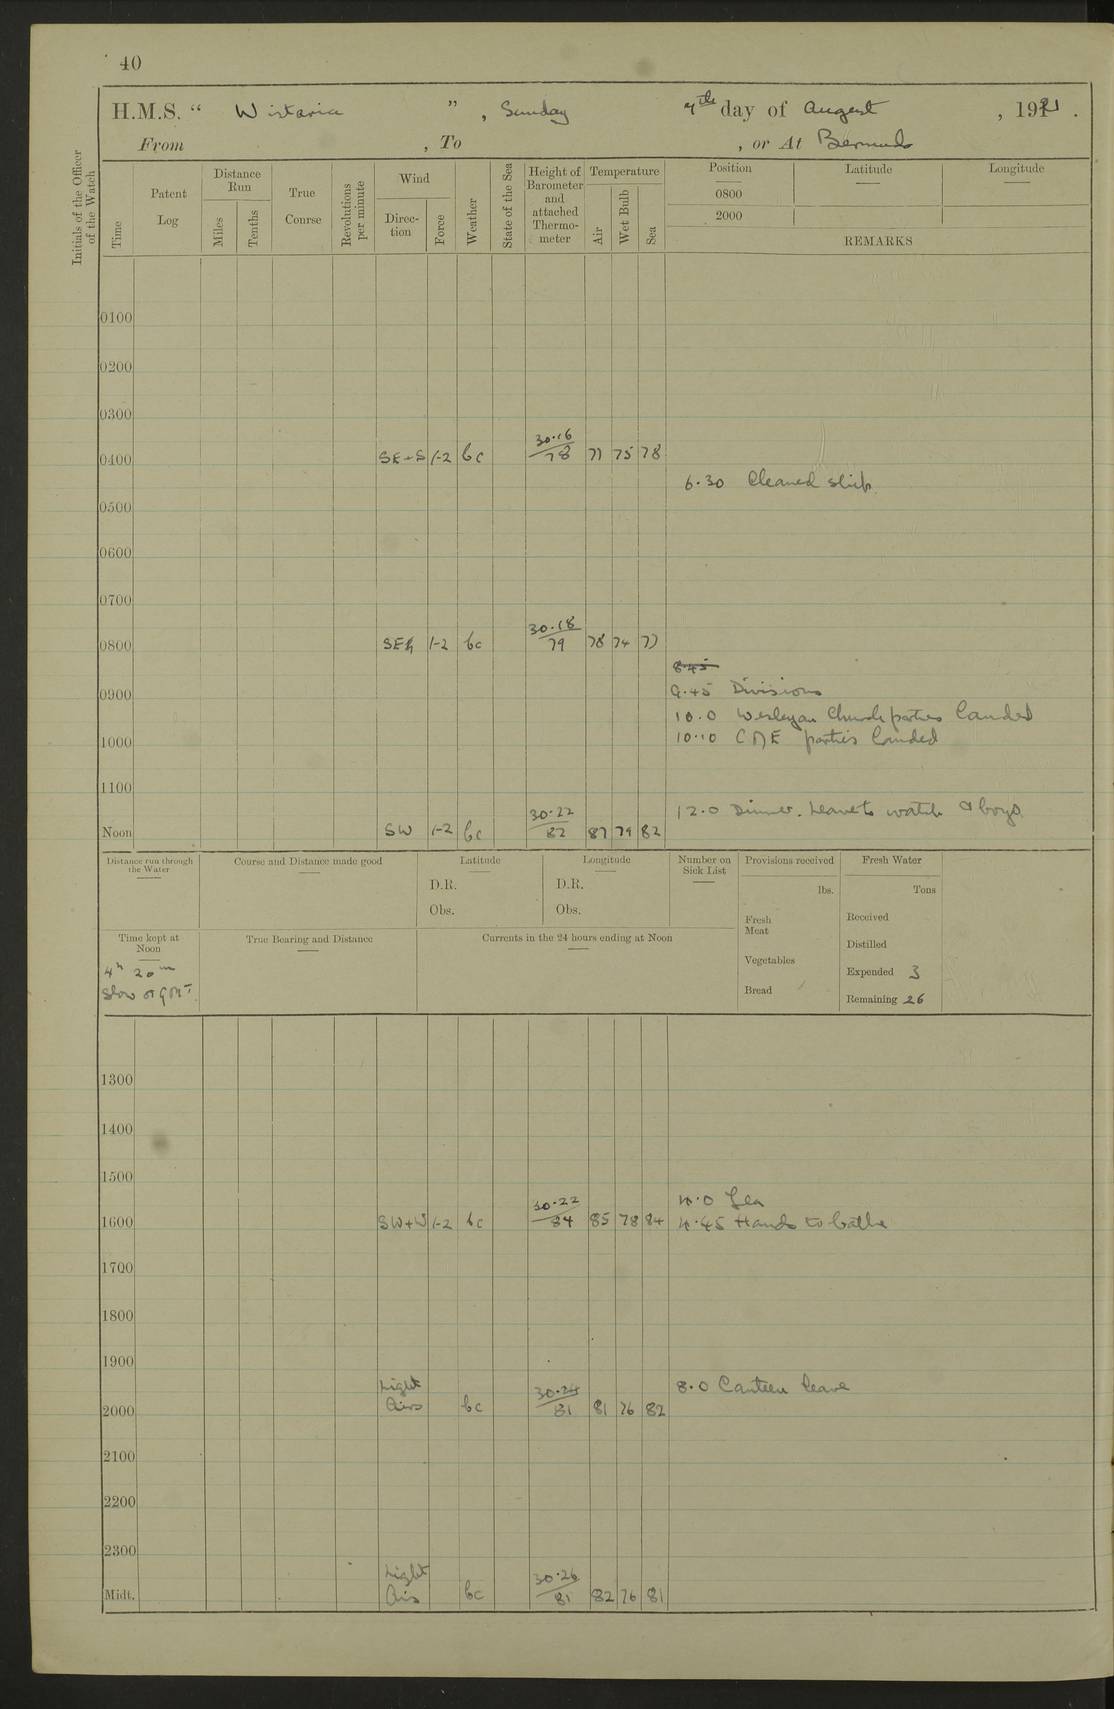 40
H.M.S. " Wistaria ", Sunday 7th day of August, 1921.
From , To , or At Bermuda
Initials of the Officer of the Watch
Time
Patent Log
Distance Run
Miles
Tenths
True Course
Revolutions per minute
Wind
Direction
Force
Weather
State of the Sea
Height of Barometer and attached Thermometer
Temperature
Air
Wet Bulb
Sea
Position Latitude Longitude
0800
2000
REMARKS
0100
0200
0300
0400 SE+S 1-2 bc 30.16/78 77 75 78
6.30 Cleaned ship
0500
0600
0700
0800 1-2 bc 30.18/79 78 74 77
8.45
0900 9.45 Divisions
10.0 Wesleyan Church parties landed
1000 10.10 C of E parties landed
1100
12.0 Dinner. Leave to watch & boys
Noon SW 1-2 bc 30.22/82 87 79 82
Distance run through the Water
Course and Distance made good
Latitude
D.R.
Obs.
Longitude
D.R.
Obs.
Number on Sick List
Provisions received
lbs.
Fresh Meat
Vegetables
Bread
Fresh Water
Tons
Received
Distilled
Expended 3
Remaining 26
Time kept at Noon
4h 20m
Slow of GMT
True Bearing and Distance
Currents in the 24 hours ending at Noon
1300
1400
1500
4.0 Tea
1600 SW+W 1-2 bc 30.22/84 85 78 84 4.45 Hands to bathe
1700
1800
1900
8.0 Canteen leave
2000 Light Airs bc 30.24/81 81 76 82
2100
2200
2300
Midt. Light Airs bc 30.26/81 82 76 81